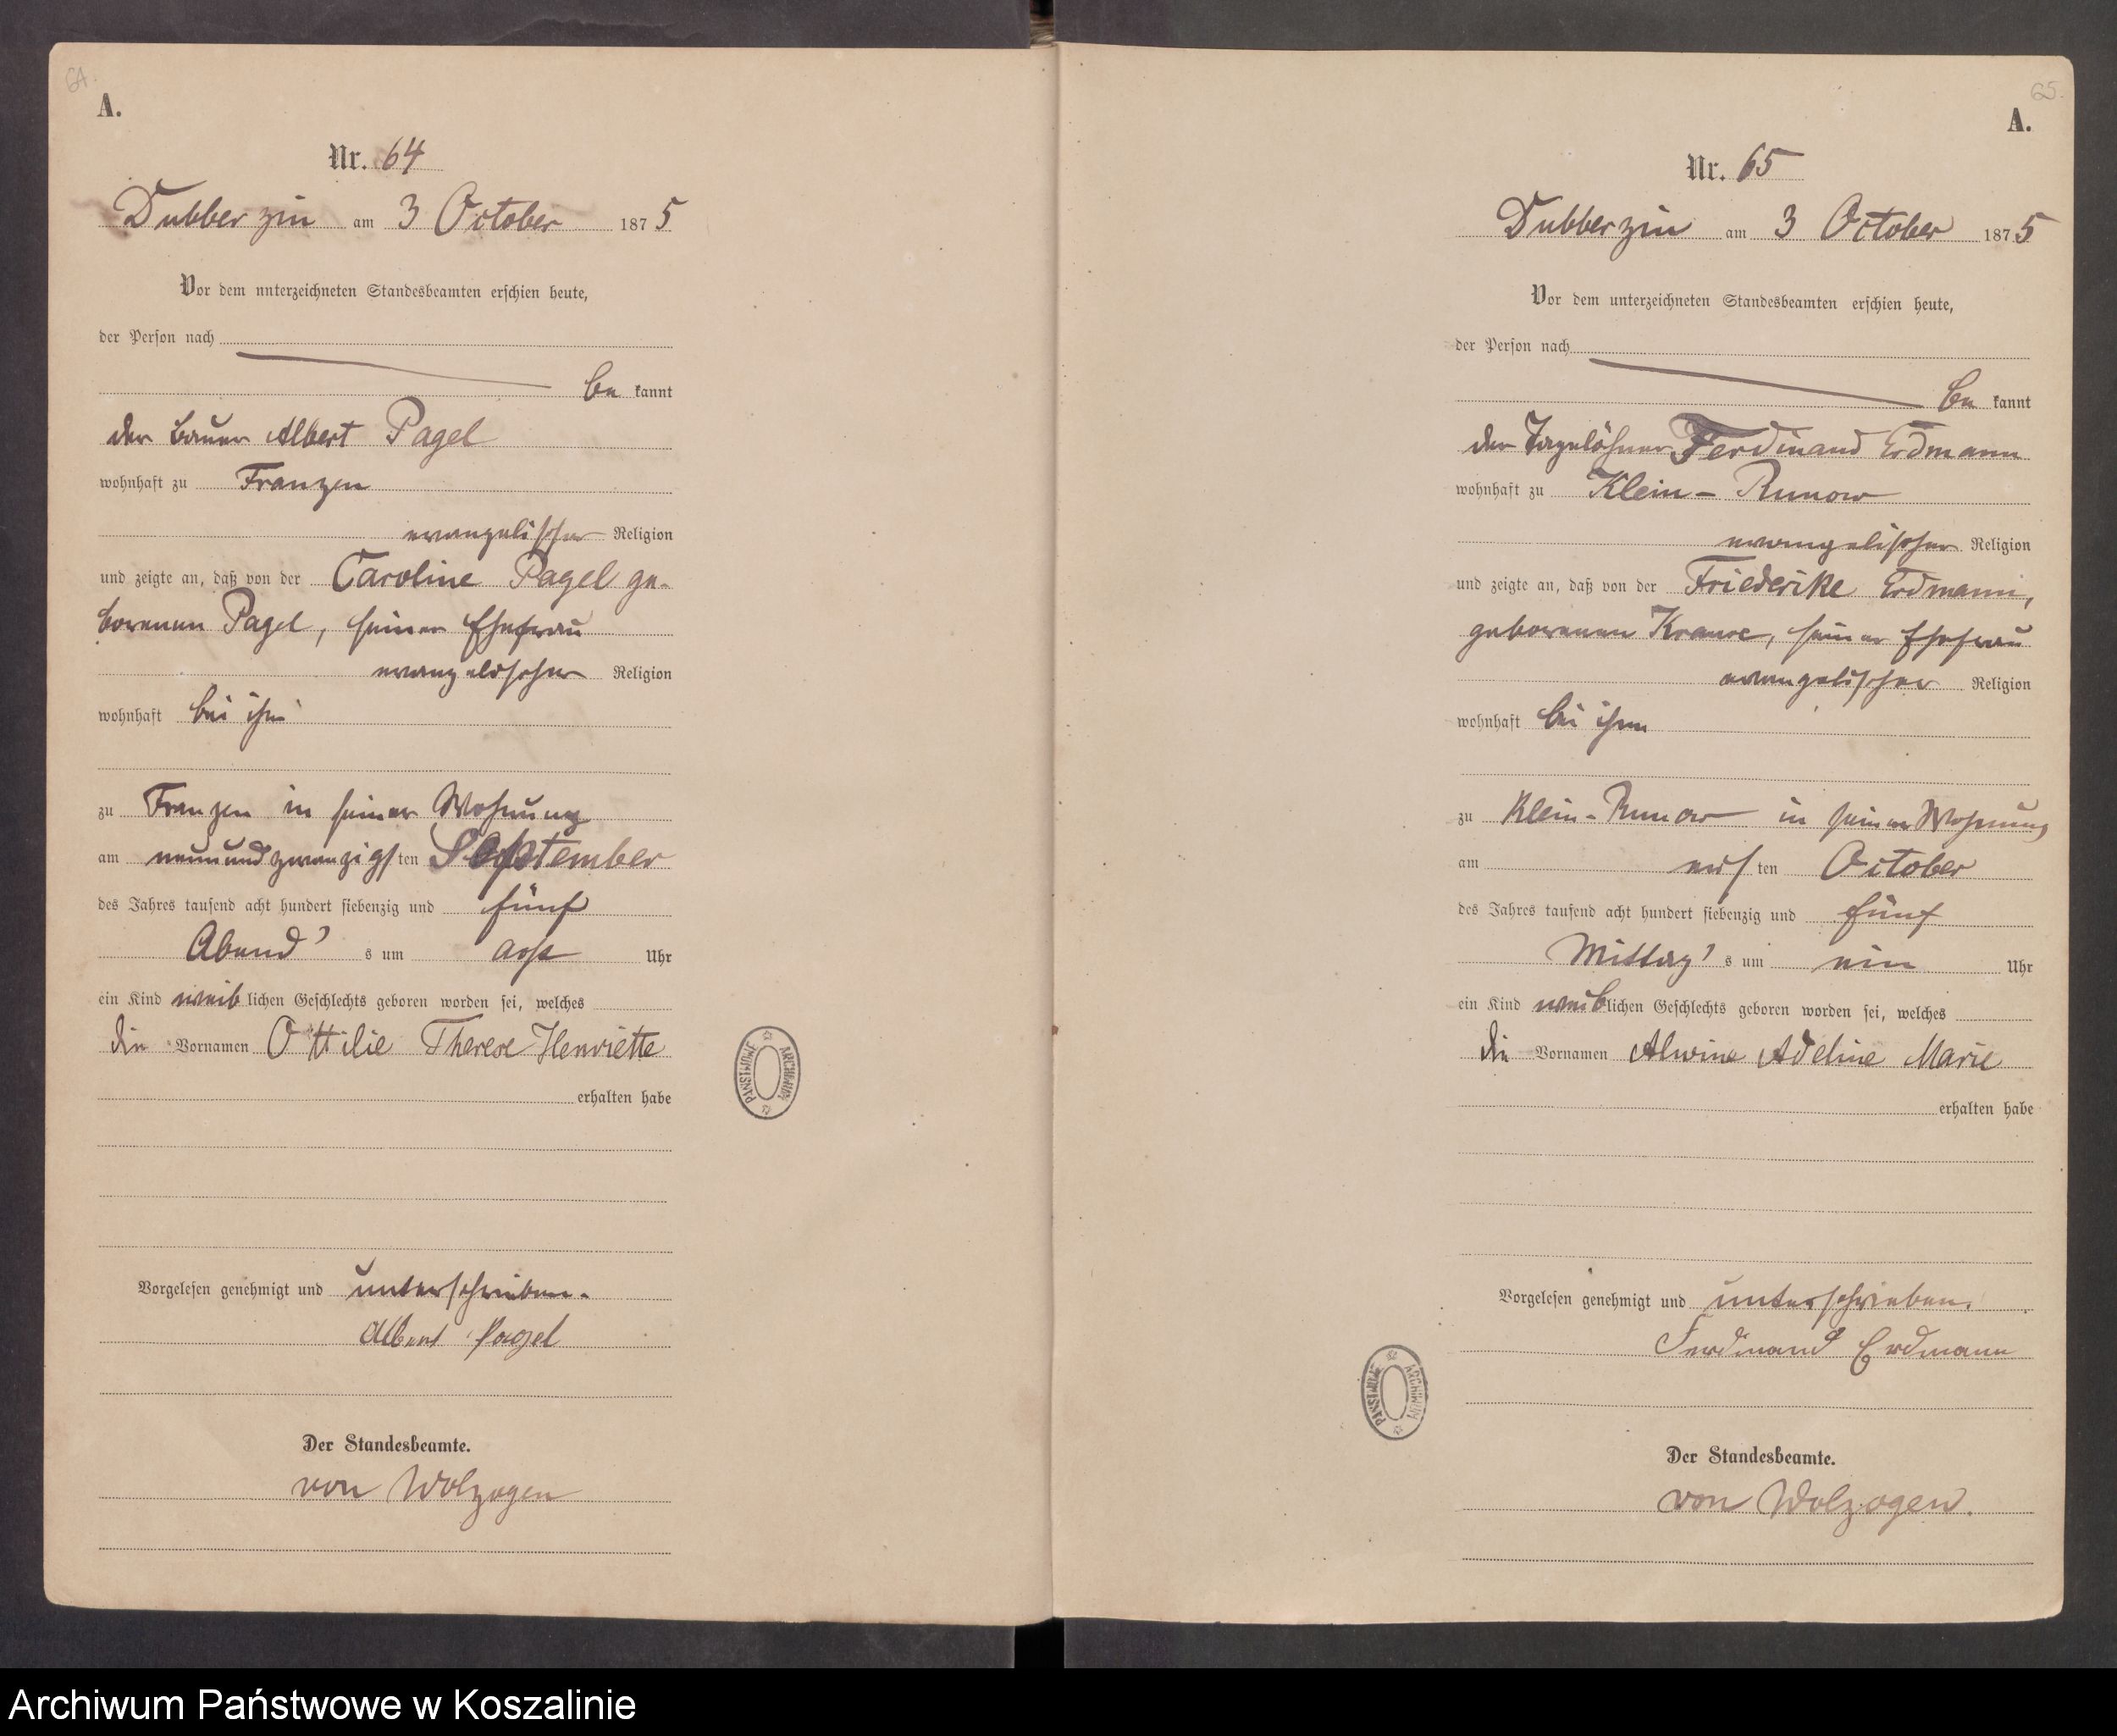 64.
A.
Nr. 64
Dubberzin am 3 October 1875
Vor dem nnterzeichneten Standesbeamten erschien heute,
der Person nach
be kannt
der Bauer Albert Pagel
wohnhaft zu Franzen
evangelischer Religion
und zeigte an, daß von der Caroline Pagel ge-
borenen Pagel, seiner Ehefrau
evangelischer Religion
wohnhaft bei ihm
zu Franzen in seiner Wohnung
am neunundzwanzigsten September
des Jahres tausend acht hundert siebenzig und fünf
Abend's um acht Uhr
ein Kind weiblichen Geschlechts geboren worden sei, welches
die Vornamen Ottilie Therese Henriette
erhalten habe
Vorgelesen genehmigt und unterschrieben.
Albert Pagel
Der Standesbeamte.
von Wolzogen
ARCHIWUM PAŃSTWOWE
65.
A.
Nr. 65
Dubberzin am 3 October 1875
Vor dem unterzeichneten Standesbeamten erschien heute,
der Person nach
be kannt
der Tagelöhner Ferdinand Erdmann
wohnhaft zu Klein-Runow
evangelischer Religion
und zeigte an, daß von der Friederike Erdmann,
geborenen Krause, seiner Ehefrau
evangelischer Religion
wohnhaft bei ihm
zu Klein-Runow in seiner Wohnung
am ersten October
des Jahres tausend acht hundert siebenzig und fünf
Mittag's um ein Uhr
ein Kind weiblichen Geschlechts geboren worden sei, welches
die Vornamen Alwine Adeline Marie
erhalten habe
Vorgelesen genehmigt und unterschrieben.
Ferdinand Erdmann
ARCHIWUM PAŃSTWOWE
Der Standesbeamte.
von Wolzogen.
Archiwum Państwowe w Koszalinie